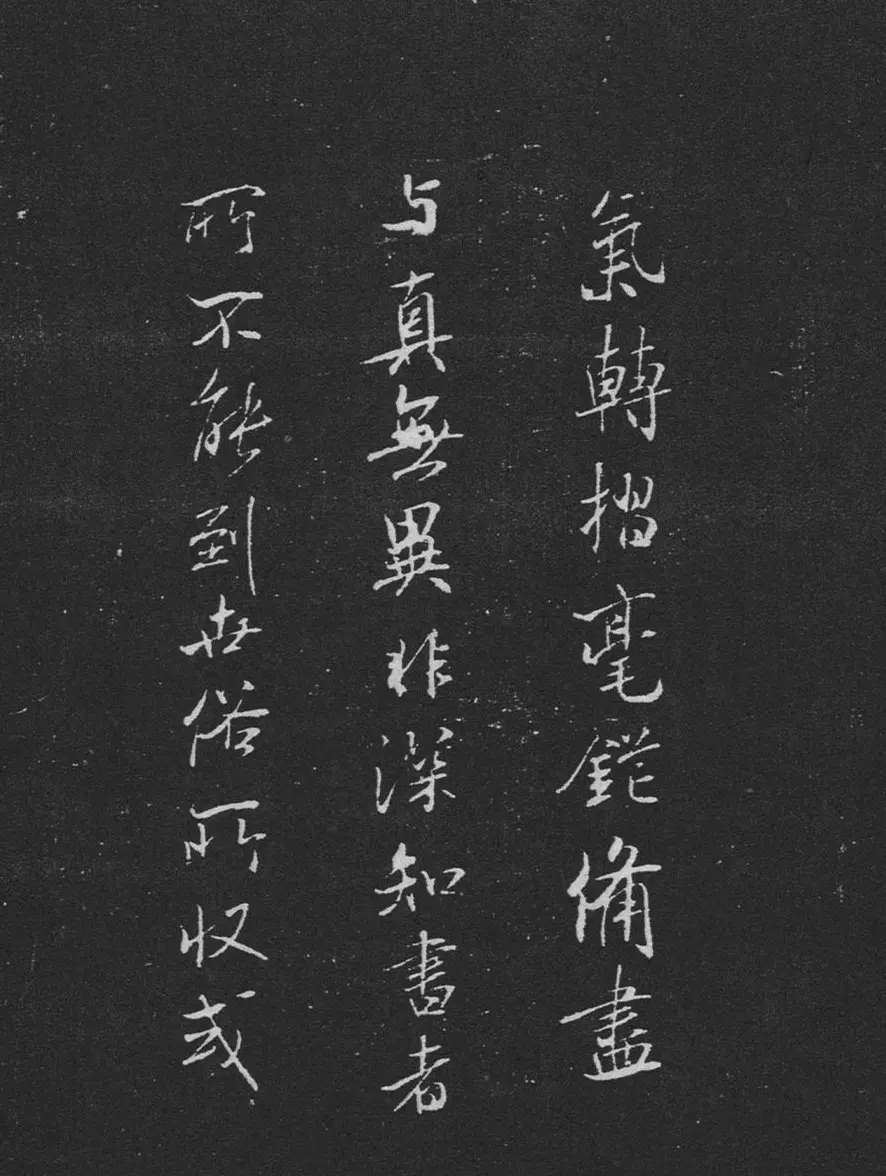 氣轉摺毫鋩備盡
与真無異非深知書者
所不能到世俗所收或